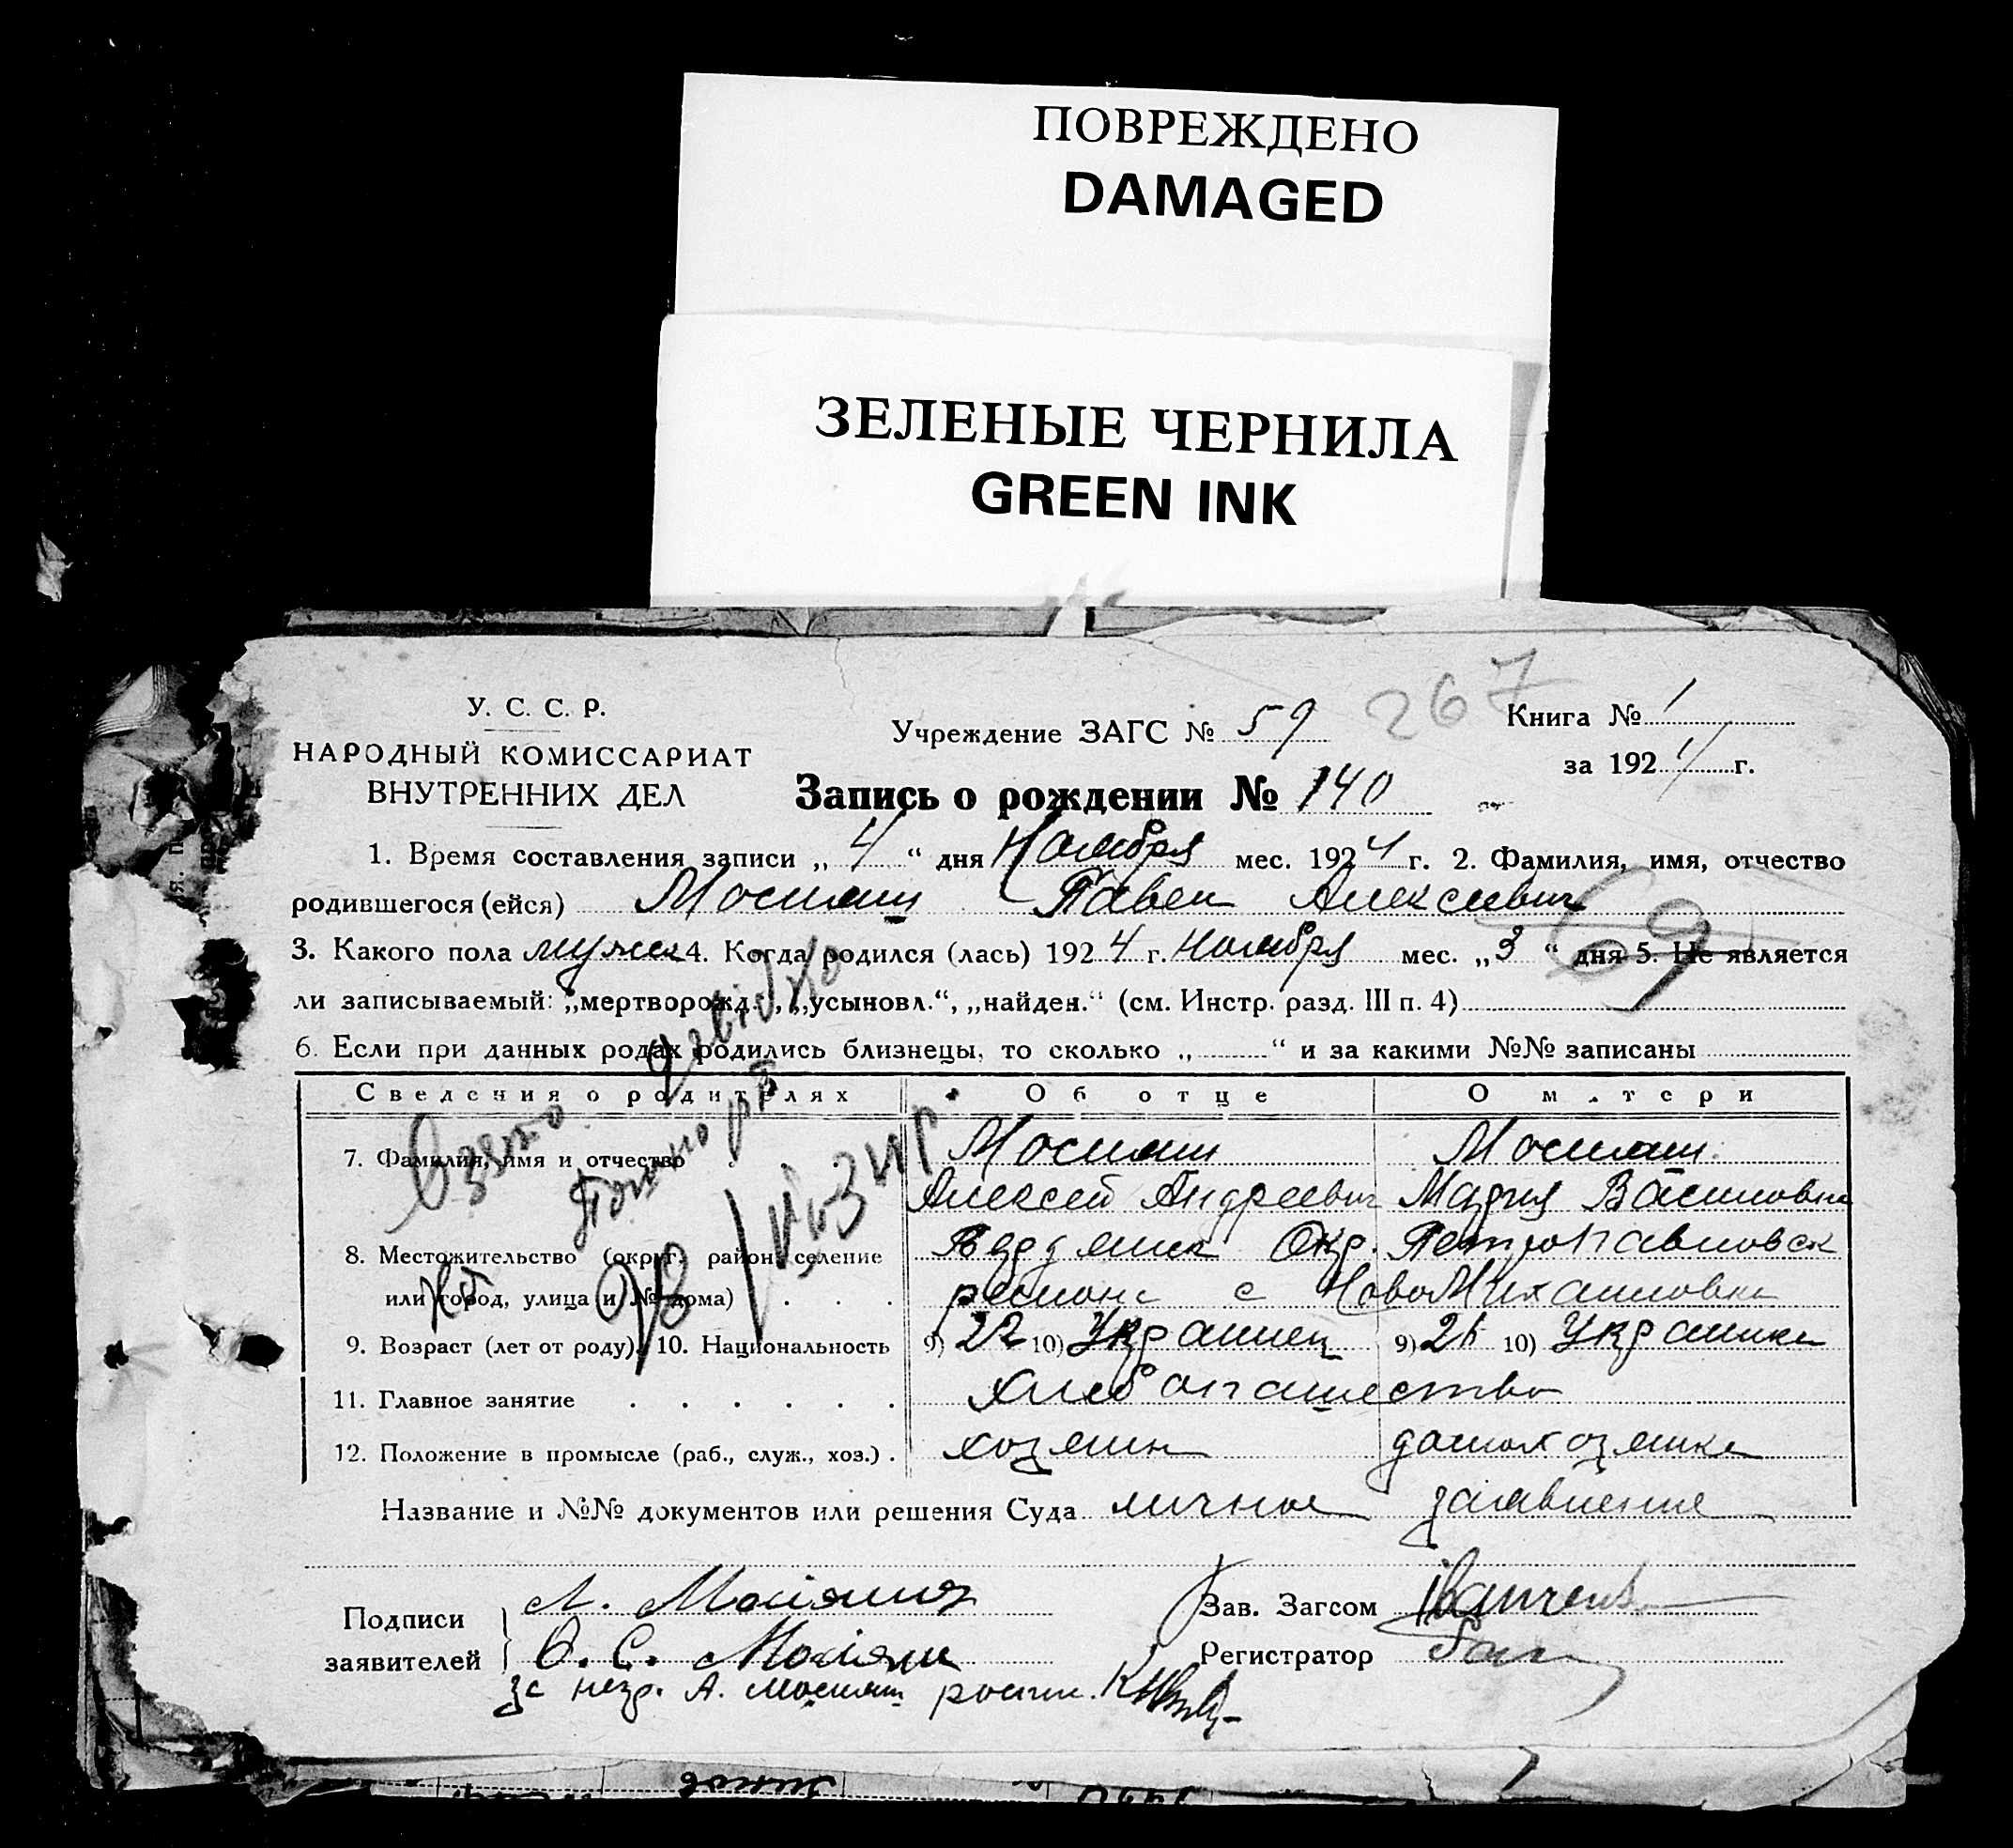 ПОВРЕЖДЕНО
DAMAGED
ЗЕЛЕНЫЕ ЧЕРНИЛА
GREEN INK
У. С. С. Р.
НАРОДНЫЙ КОМИССАРИАТ
ВНУТРЕННИХ ДЕЛ
Учреждение ЗАГС № 59
267
Книга № 1
за 1924 г.
Запись о рождении № 140
1. Время составления записи „4“ дня Ноября мес. 1924 г. 2. Фамилия, имя, отчество
родившегося (ейся) Мосияш Павел Алексеевич
69
3. Какого пола мужск 4. Когда родился (лась) 1924 г. Ноября мес. „3“ дня 5. Не является
ли записываемый: „мертворожд.“, „усыновл.“, „найден.“ (см. Инстр. разд. III п. 4)
6. Если при данных родах родились близнецы, то сколько „ “ и за какими №№ записаны
Сведения о родителях Об отце О матери
7. Фамилия, имя и отчество Мосияш Мосияш
Алексей Андреевич Мария Василовна
8. Местожительство (округ, район, селение Бердянск Окр. Петропавловск
или город, улица и № дома) района с НовоМихайловка
9. Возраст (лет от роду). 10. Национальность 9) 22 10) Украинец 9) 21 10) Украинка
11. Главное занятие Хлебопашество
12. Положение в промысле (раб., служ., хоз.) хозяин домохозяйка
Название и №№ документов или решения Суда личное заявление
Подписи
заявителей
А. Мосіяш
О. С. Мосіяш
за негр. А. Мосияш
Зав. Загсом
Регистратор